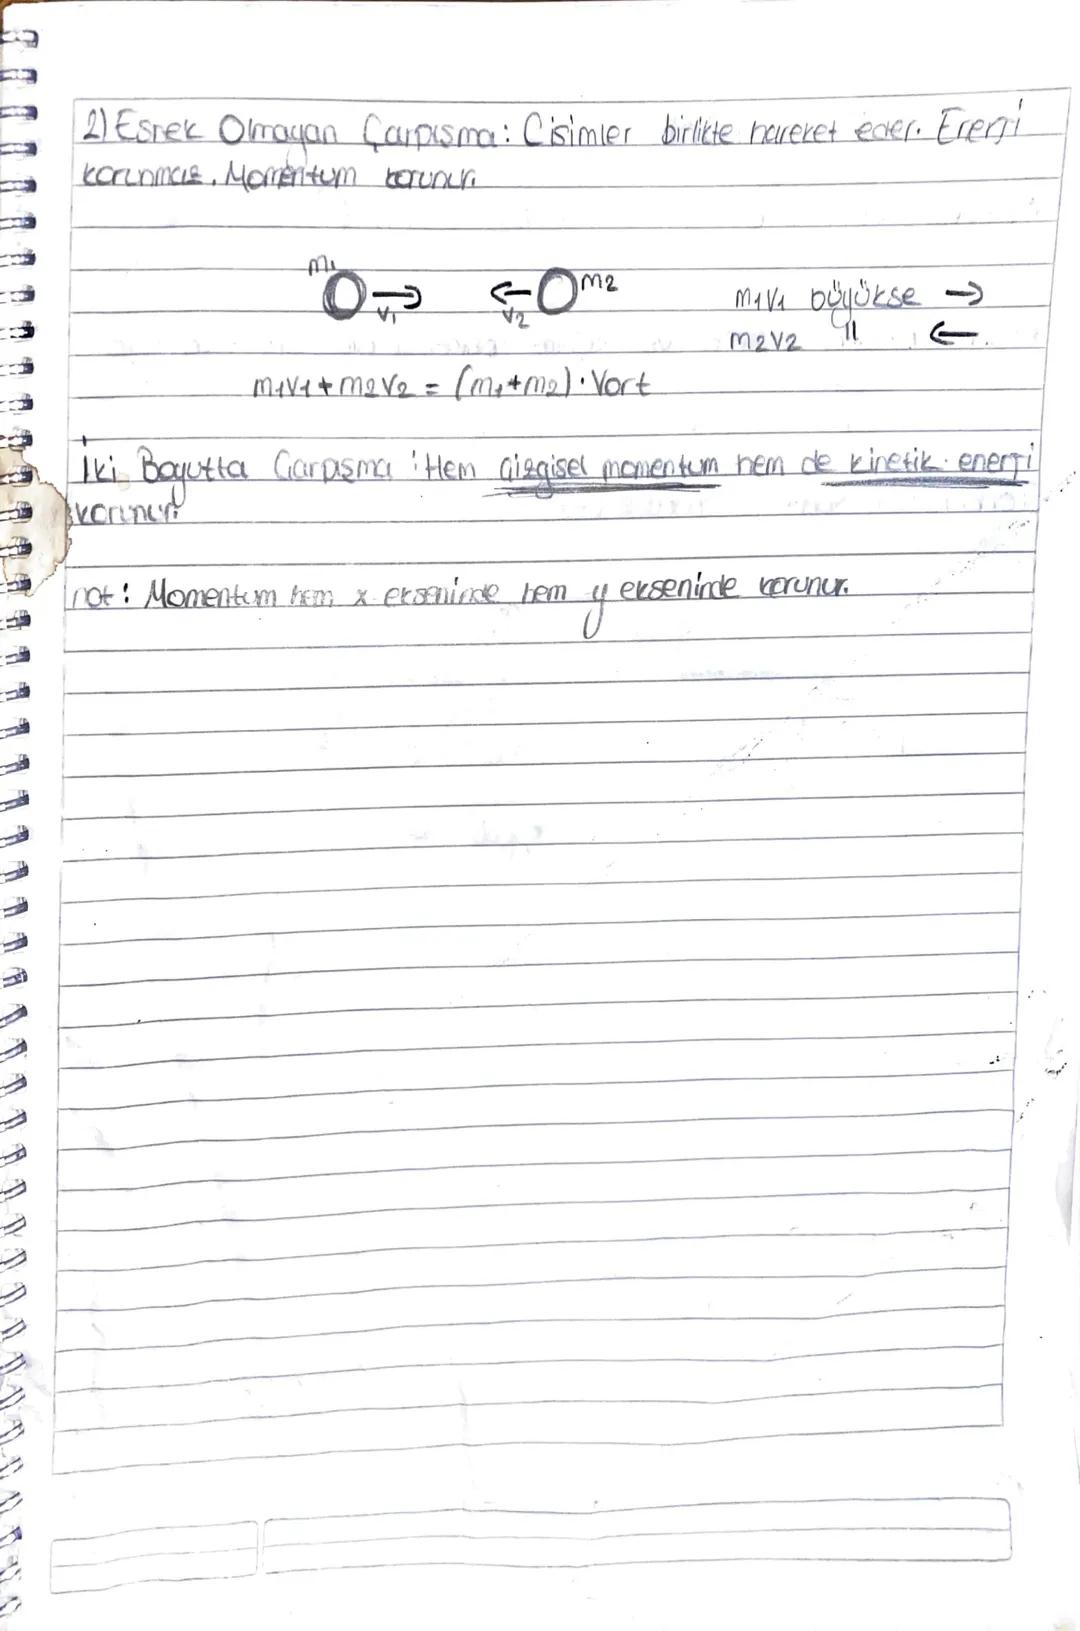 2) Esnek Olmayan Çarpısma: Cisimler birlikte hareket eder. Enerji
korunmaz. Momentum korunur.
m1 m2
V1 V2
m1V1 büyükse →
m2V2 " ←
m1V1 + m2V2 = (m1+m2) . Vort
İki Boyutta Çarpısma : Hem Çizgisel momentum hem de kinetik enerji
korunur.
not : Momentum hem x ekseninde hem y ekseninde korunur.